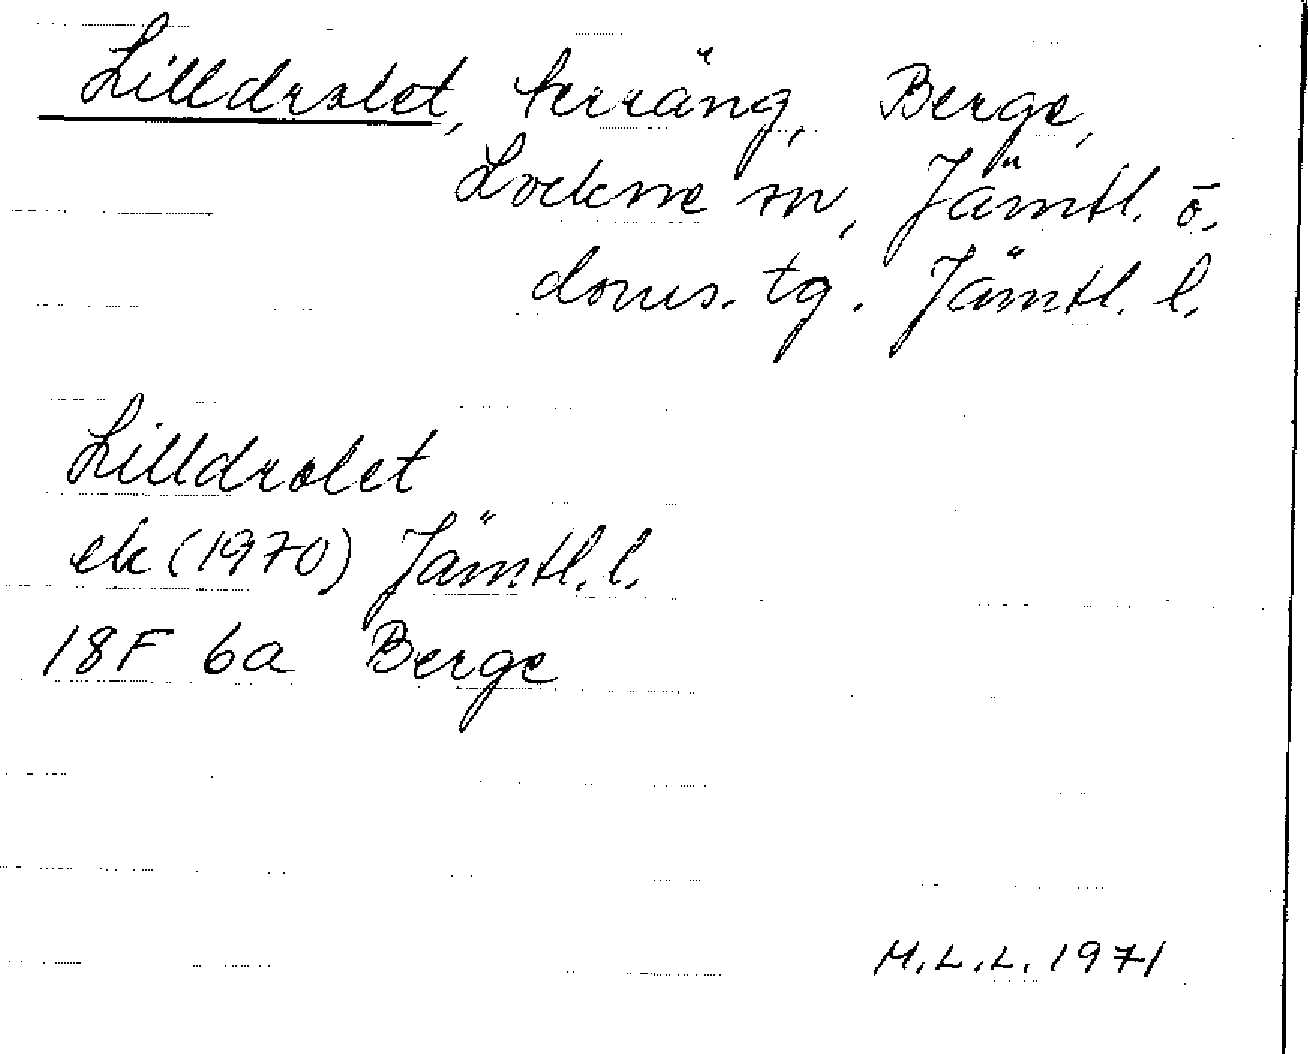 Lilldrolet, terräng, Berge,
Lockne sn, Jämtl. ö.
doms. tg. Jämtl. l.
Lilldrolet
ek (1970) Jämtl. l.
18F 6a Berge
M.L.L. 1971